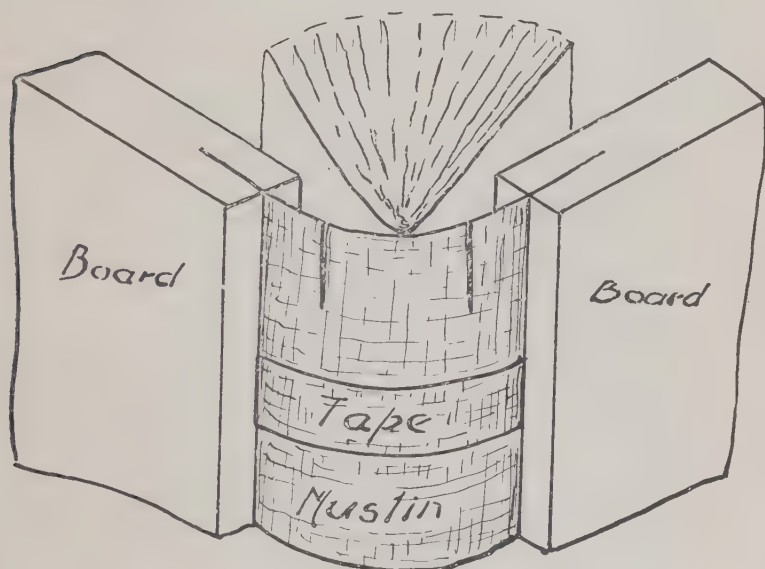 Board
Board
Tape
Muslin